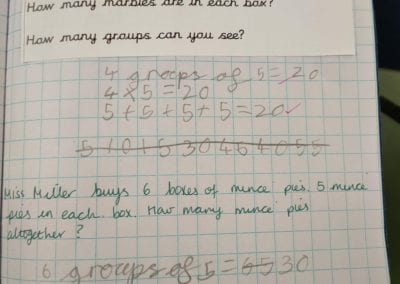 How many marbles are in each box?
How many groups can you see?
4 groups of 5 = 20
4 × 5 = 20
5 + 5 + 5 + 5 = 20
5 10 15 30 45 40 55
Miss Muller buys 6 boxes of mince pies. 5 mince
pies in each box. How many mince pies
altogether ?
6 groups of 5 = 65 30